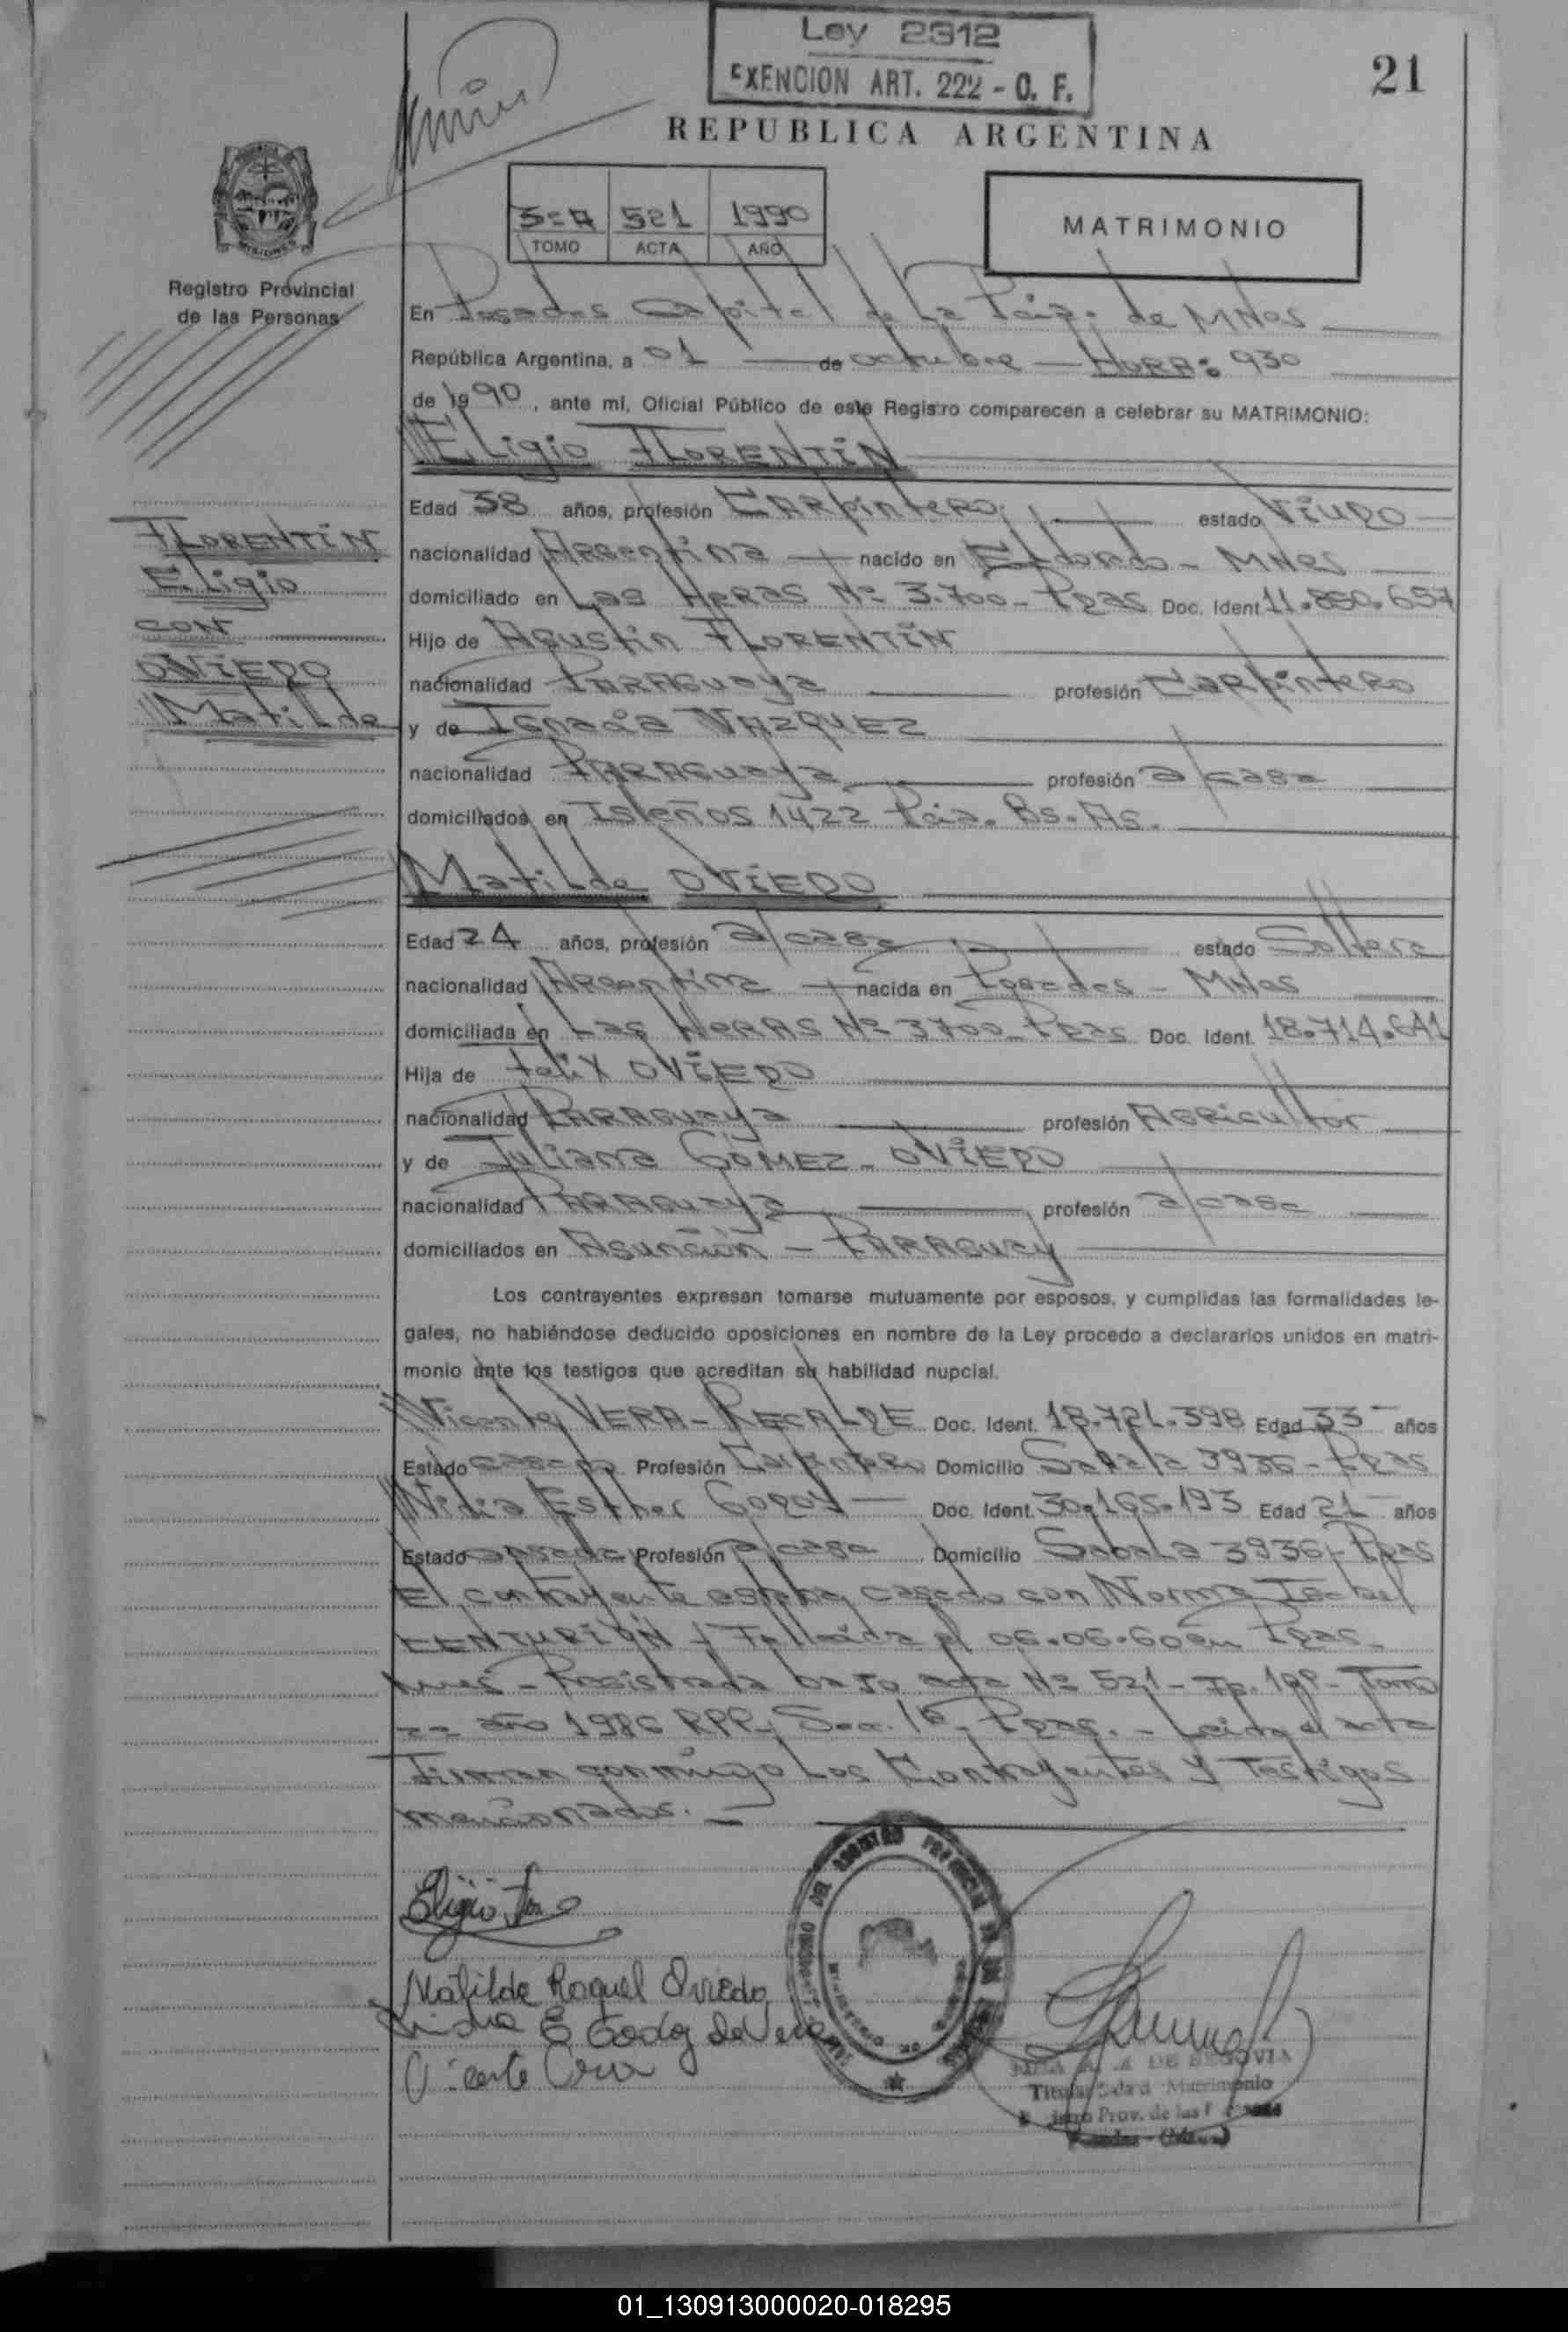 Ley 2312
EXENCION ART. 222 - O. F.
21
REPUBLICA ARGENTINA
521 1990
TOMO ACTA AÑO
MATRIMONIO
Registro Provincial
de las Personas
En Posadas Capital de La Pcia. de MNes
República Argentina, a 01 de octubre HORA: 930
de 1990, ante mí, Oficial Público de este Registro comparecen a celebrar su MATRIMONIO:
Eligio FLORENTIN
FLORENTIN
Eligio
CON
OVIEDO
Matilde
Edad 38 años, profesión CARpintERO estado ViUDO
nacionalidad ARgentina nacido en Eldorado - MNes
domiciliado en Las HeRAS Nº 3.700 - Pdas Doc. Ident 11.850.657
Hijo de Agustin FLORENTIN
nacionalidad PARAguaya profesión CarpinteRo
y de Ignacia VAZQUEZ
nacionalidad PARAguaya profesión a/casa
domiciliados en Isleños 1422 Pcia. Bs. As.
Matilde OVIEDO
Edad 24 años, profesión a/casa estado Soltera
nacionalidad ARgentina nacida en Posadas - MNes
domiciliada en Las HeRAS Nº 3700 - Pdas Doc. Ident. 18.714.641
Hija de Felix OVIEDO
nacionalidad PARAguaya profesión AgRicultor
y de Juliana GOMEZ - OVIEDO
nacionalidad PARAguaya profesión a/casa
domiciliados en Asunción - PARAguay
Los contrayentes expresan tomarse mutuamente por esposos, y cumplidas las formalidades le-
gales, no habiéndose deducido oposiciones en nombre de la Ley procedo a declararlos unidos en matri-
monio ante los testigos que acreditan su habilidad nupcial.
Vicente VERA - RECALDE Doc. Ident. 18.721.398 Edad 33 años
Estado casado Profesión Carpintero Domicilio Sabala 3936 - Pdas
Nidia Esther Godoy Doc. Ident. 30.165.193 Edad 21 años
Estado casada Profesión a/casa Domicilio Sabala 3936 - Pdas
El contrayente estaba casado con Norma Isabel
CENTURIÓN / Fallecida el 06.06. en Pdas.
Mnes - Registrada bajo acta Nº 521 - Tomo
año 1986 RPP. Secc. 1ª, Pdas. - Leida el acta
Firman conmigo Los Contrayentes y Testigos
mencionados.
Eligio
Matilde Raquel Oviedo
Nidia E Godoy de Vera
Vicente Vera
DE SEGOVIA
Matrimonio
Prov. de las
01_130913000020-018295